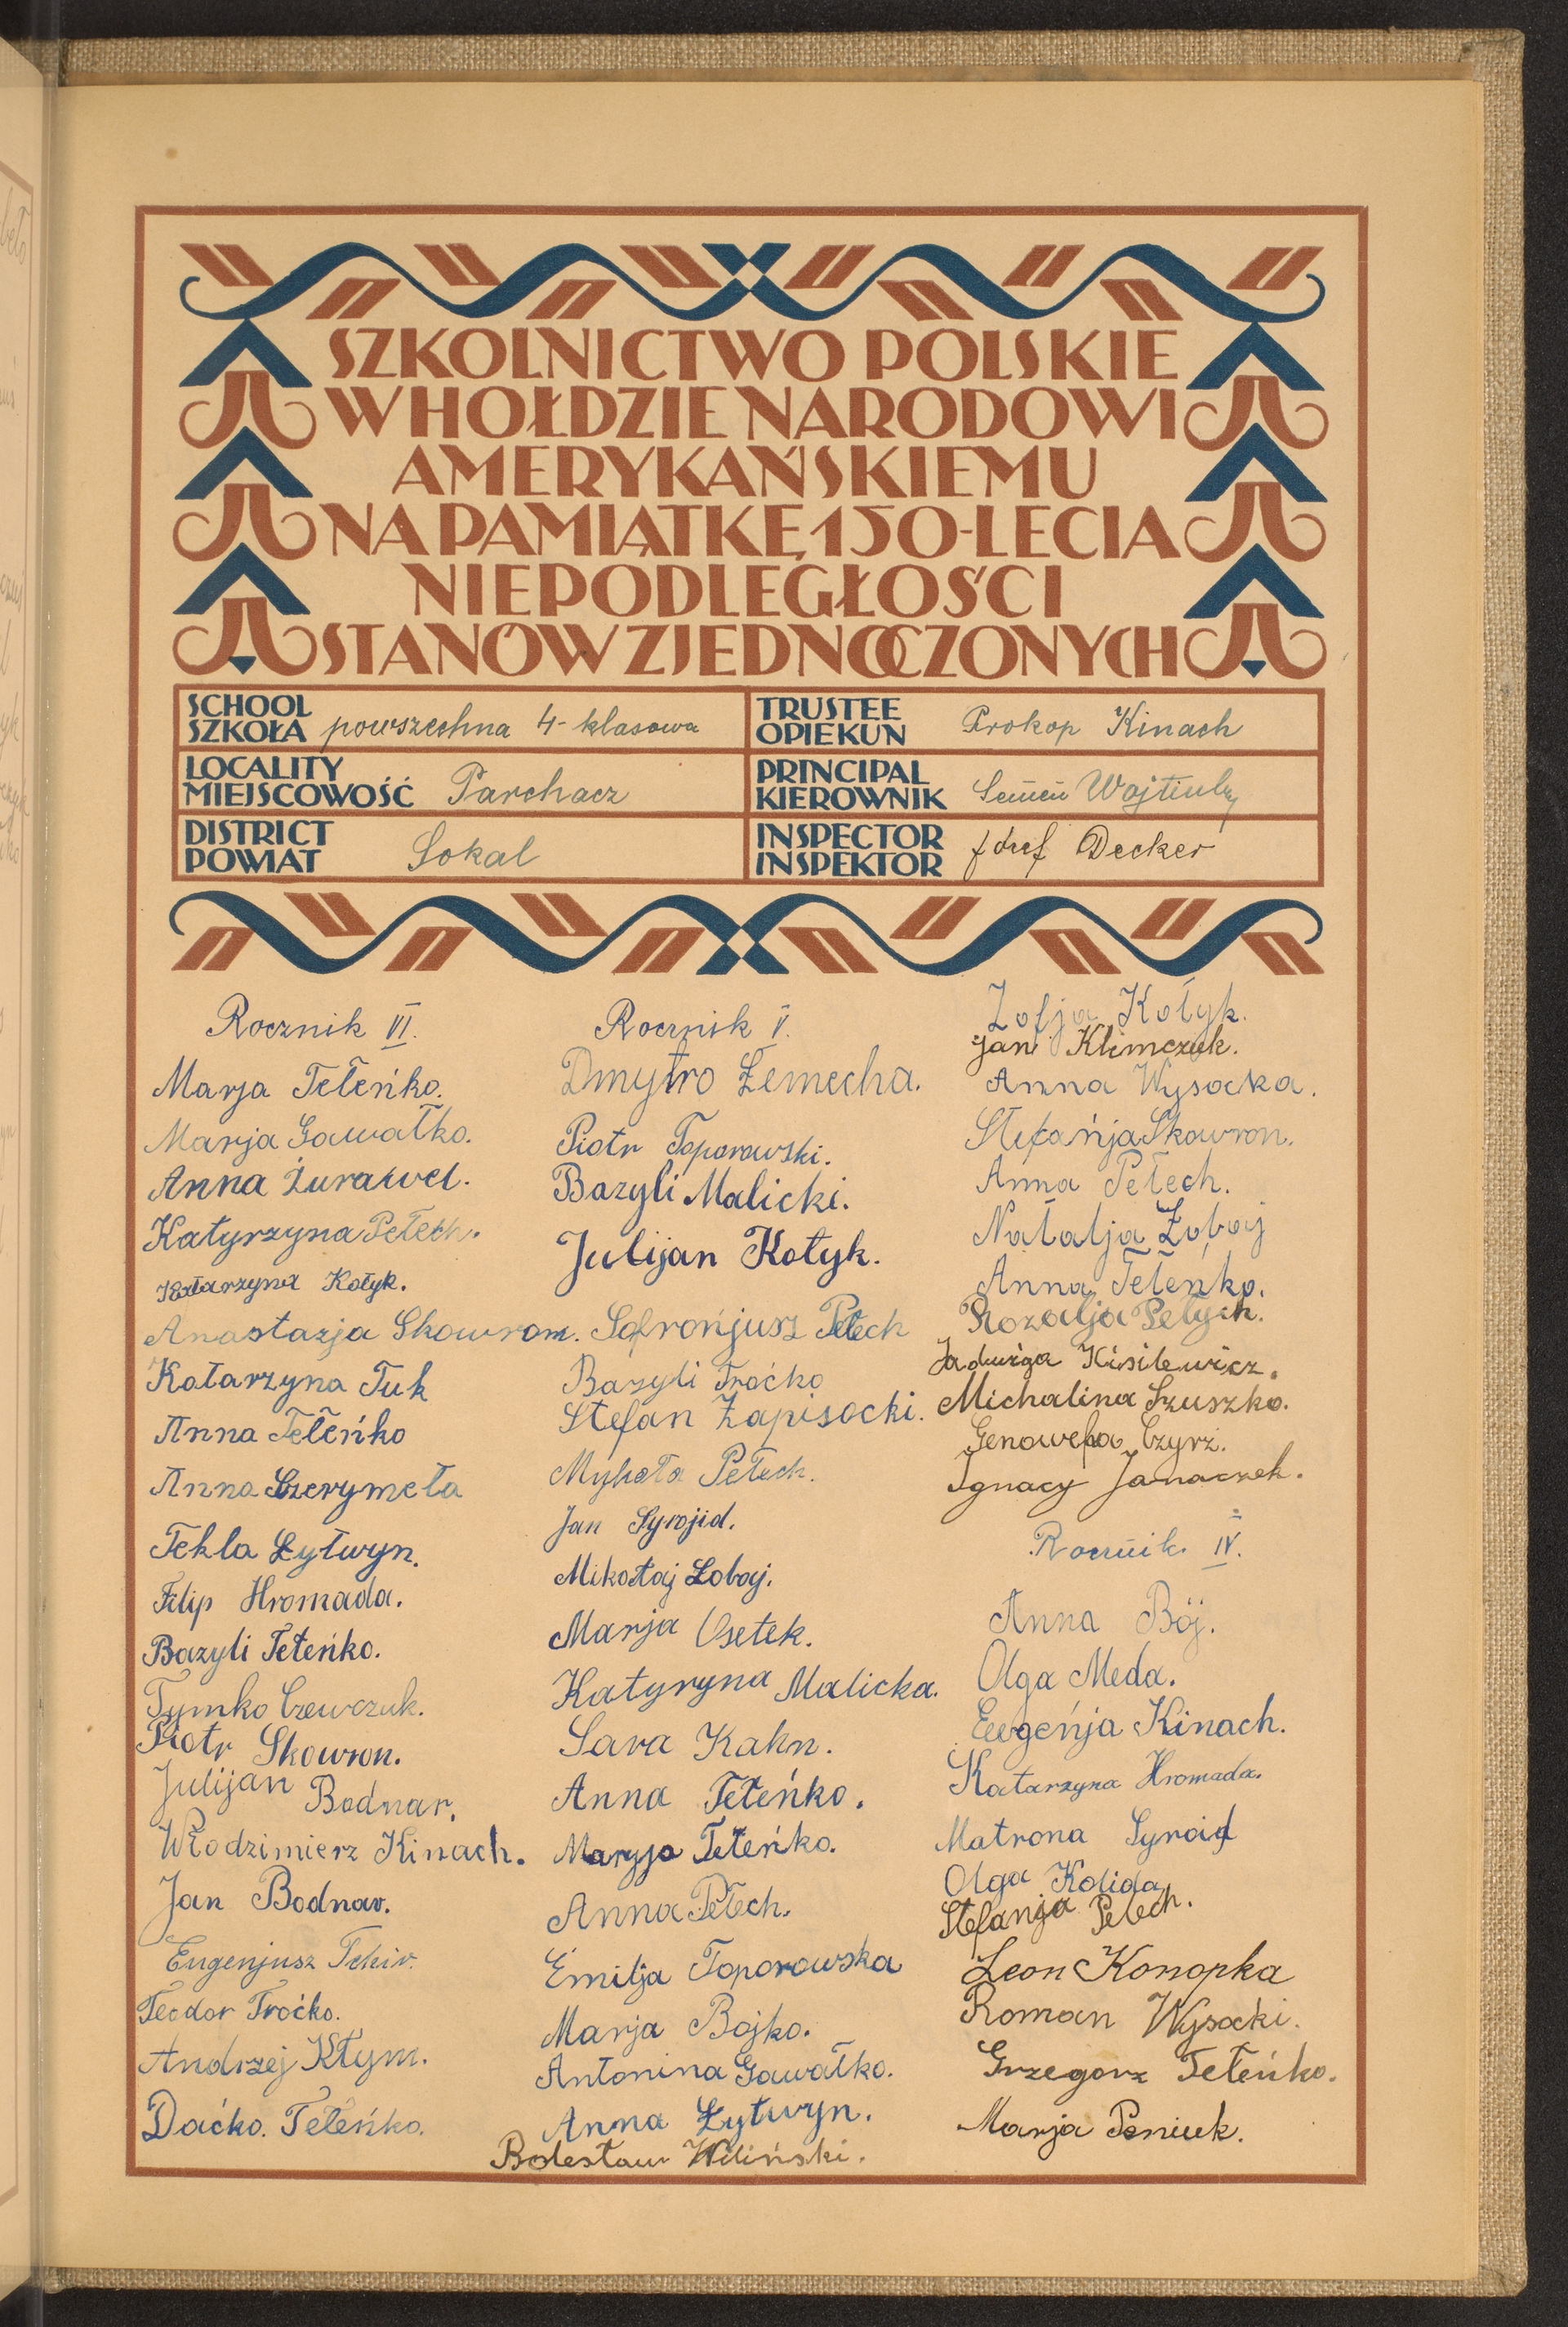 SZKOLNICTWO POLSKIE
W HOŁDZIE NARODOWI
AMERYKAŃSKIEMU
NA PAMIĄTKĘ 150-LECIA
NIEPODLEGŁOŚCI
STANÓW ZJEDNOCZONYCH
SCHOOL
SZKOŁA powszechna 4-klasowa
TRUSTEE
OPIEKUN Prokop Kinach
LOCALITY
MIEJSCOWOŚĆ Parchacz
PRINCIPAL
KIEROWNIK Semen
DISTRICT
POWIAT Sokal
INSPECTOR
INSPEKTOR Józef Decker
Rocznik VI.
Marja Teleńko.
Marja Gawałko.
Anna Żurawel.
Katyrzyna Pełech.
Katarzyna Kołyk.
Anastazja Skowrom.
Katarzyna Tuk
Anna Teleńko
Anna Szerymeła
Tekla Łytwyn.
Filip Hromada.
Bazyli Teteńko.
Tymko Czewczuk.
Piotr Skowron.
Julijan Bodnar.
Włodzimierz Kinach.
Jan Bodnar.
Eugenjusz Tchir.
Teodor Troćko.
Andrzej Kłym.
Daćko. Teleńko.
Rocznik V.
Dmytro Żemecha.
Piotr Toporowski.
Bazyli Malicki.
Julijan Kotyk.
Sofrońjusz Petech
Bazyli Troćko
Stefan Zapisocki.
Mychała Pełech.
Jan Syrojid.
Mikołaj Łobaj.
Marja Osetek.
Katyryna Malicka.
Sara Kahn.
Anna Teteńko.
Maryja Teteńko.
Anna Pełech.
Emilja Toporowska
Marja Bojko.
Antonina Gawałko.
Anna Łytwyn.
Bolesław Wiliński.
Zofja Kołyk.
Jan Klimczuk.
Anna Wysocka.
Stefańja Skowron.
Anna Pełech.
Natalja Łobaj
Anna Teleńko.
Rozalja Petych.
Jadwiga Kisilewicz.
Michalina Szuszko.
Genowefa Czyrz.
Ignacy Janaczek.
Rocznik IV.
Anna Bój.
Olga Meda.
Ewgeńja Kinach.
Katarzyna Hromada.
Matrona Syroid
Olga Kolida
Stefanja Petech.
Leon Konopka
Roman Wysocki.
Grzegorz Teteńko.
Marja Peniuk.